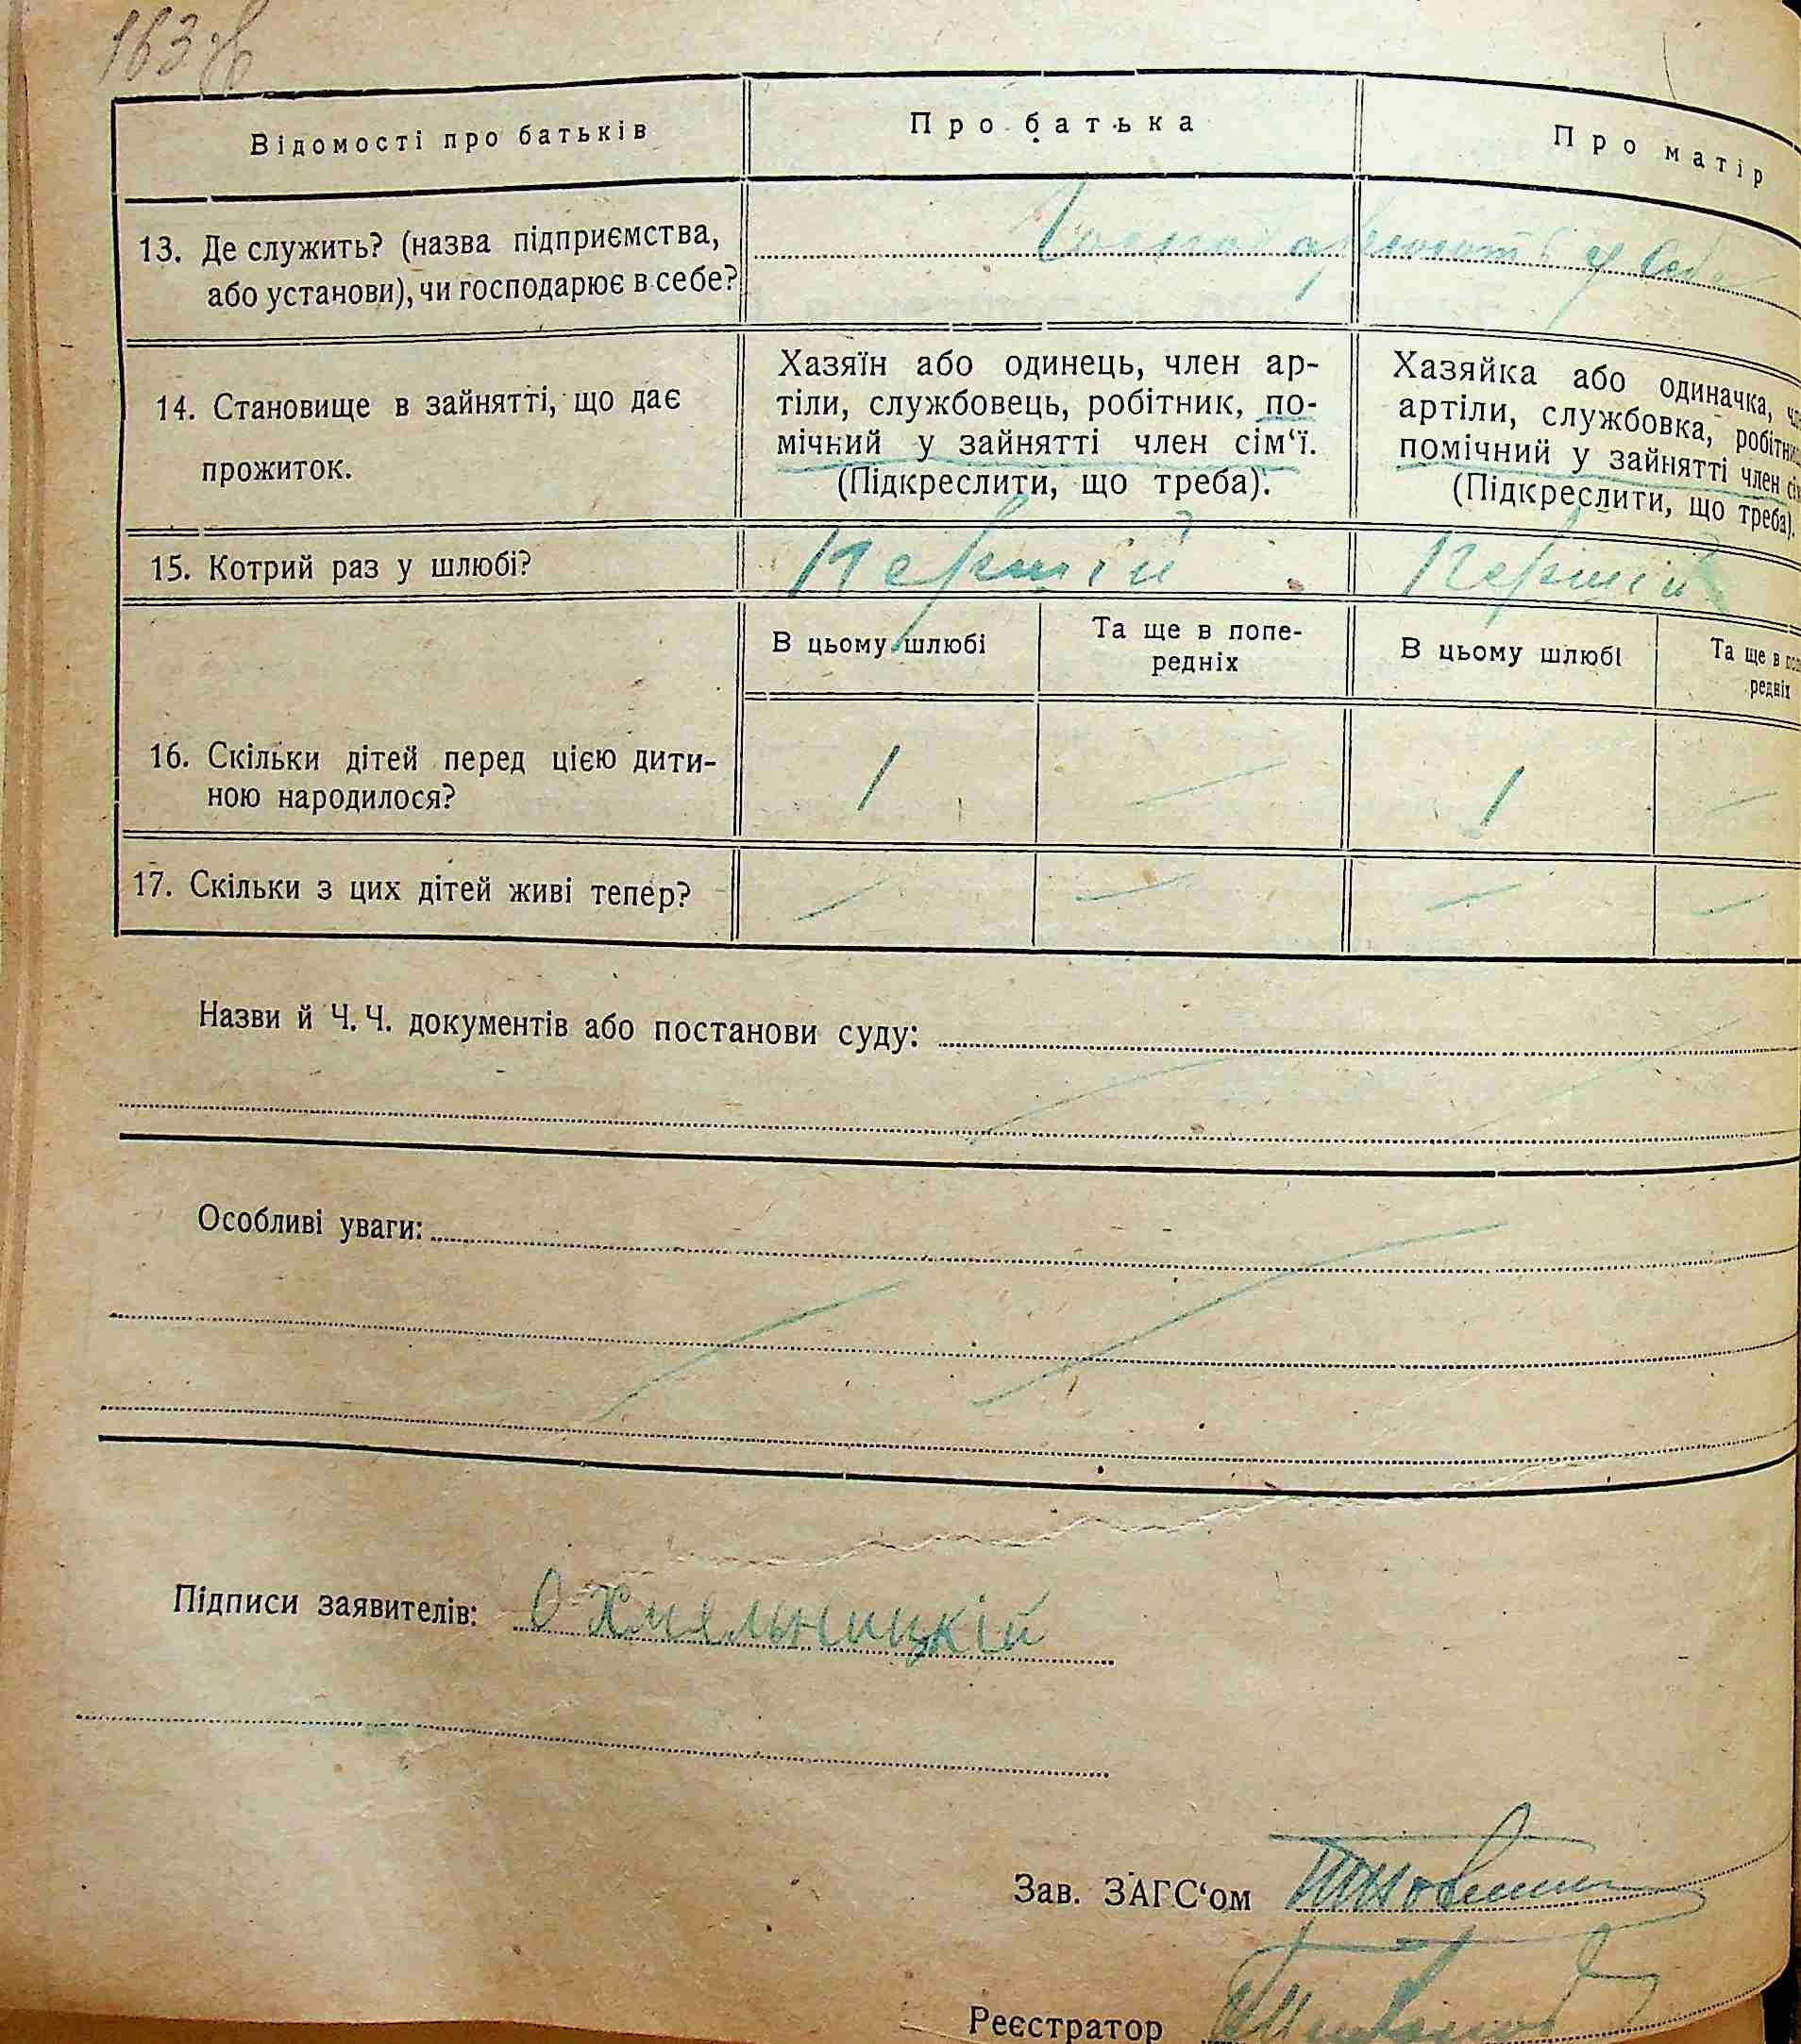 163 зв
Відомості про батьків
Про батька
Про матір
13. Де служить? (назва підприємства,
або установи), чи господарює в себе?
Господарюють у себе
14. Становище в зайнятті, що дає
прожиток.
Хазяїн або одинець, член ар-
тіли, службовець, робітник, по-
мічний у зайнятті член сім‘ї.
(Підкреслити, що треба).
Хазяйка або одиначка, чл
артіли, службовка, робітни
помічний у зайнятті член сі
(Підкреслити, що треба).
15. Котрий раз у шлюбі?
Першій
Першій
В цьому шлюбі
Та ще в попе-
редніх
В цьому шлюбі
Та ще в поп
редніх
16. Скільки дітей перед цією дити-
ною народилося?
1 — 1 —
17. Скільки з цих дітей живі тепер?
— — — —
Назви й Ч. Ч. документів або постанови суду:
Особливі уваги:
Підписи заявителів: О Хмельницкій
Зав. ЗАГС‘ом
Реєстратор